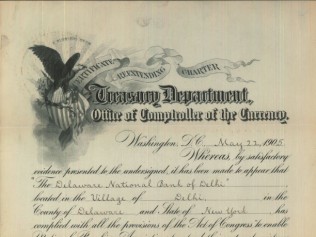 CERTIFICATE
RE-EXTENDING
CHARTER
Treasury Department,
Office of Comptroller of the Currency.
Washington, D.C. May 22, 1905
Whereas by satisfactory
evidence presented to the undersigned, it has been made to appear that
"The Delaware National Bank of Delhi"
located in the Village of Delhi, in the
County of Delaware and State of New York has
complied with all the provisions of the Act of Congress "to enable